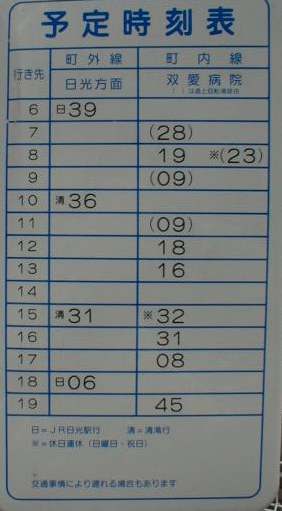 予定時刻表
行き先 町外線 町内線
日光方面 双愛病院
6 日39
7 (28)
8 19 ※(23)
9 (09)
10 清36
11 (09)
12 18
13 16
14
15 清31 ※32
16 31
17 08
18 日06
19 45
日=JR日光駅行 清=清滝行
※=休日運休(日曜日・祝日)
交通事情により遅れる場合もあります